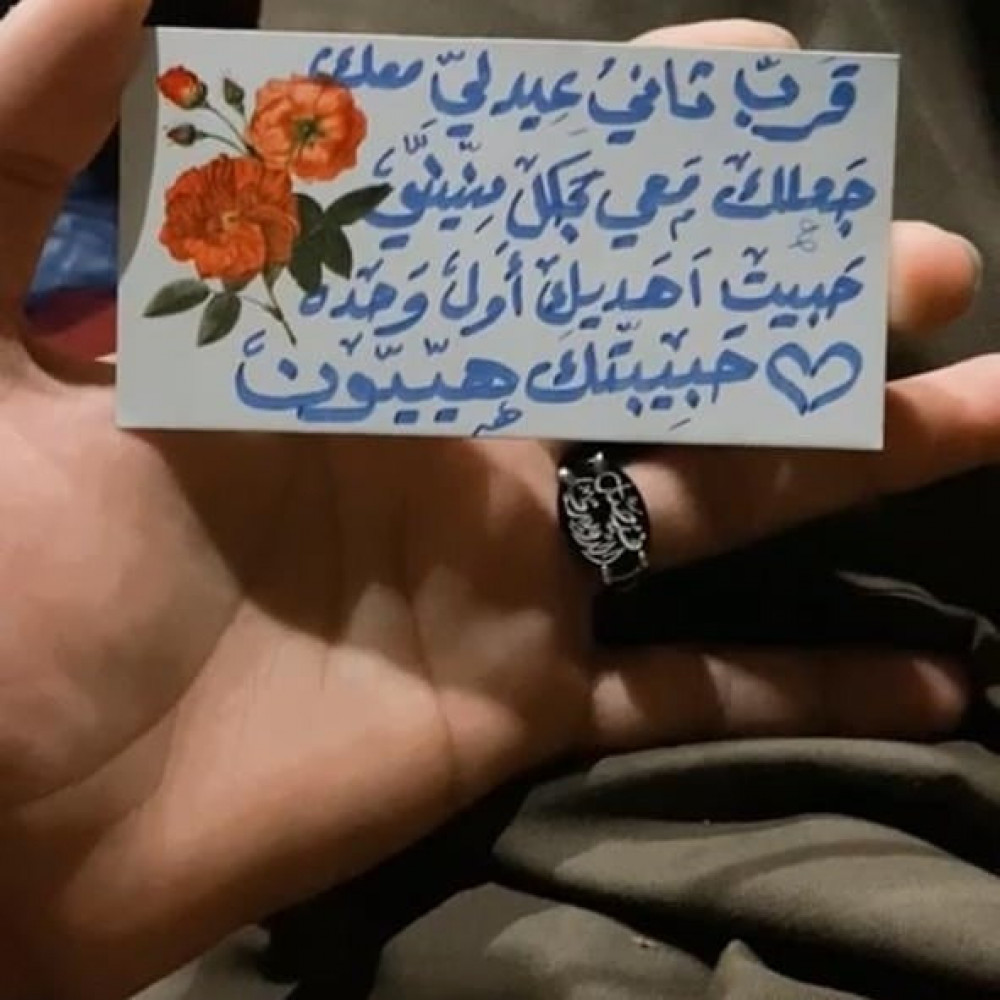 قَربّ ثاني عِيد ليّ معك
جَعلك مَعي بَكل سِنيني
حَبيت اَهَديك أول وَحَده
حَبيبتك هيّيّون